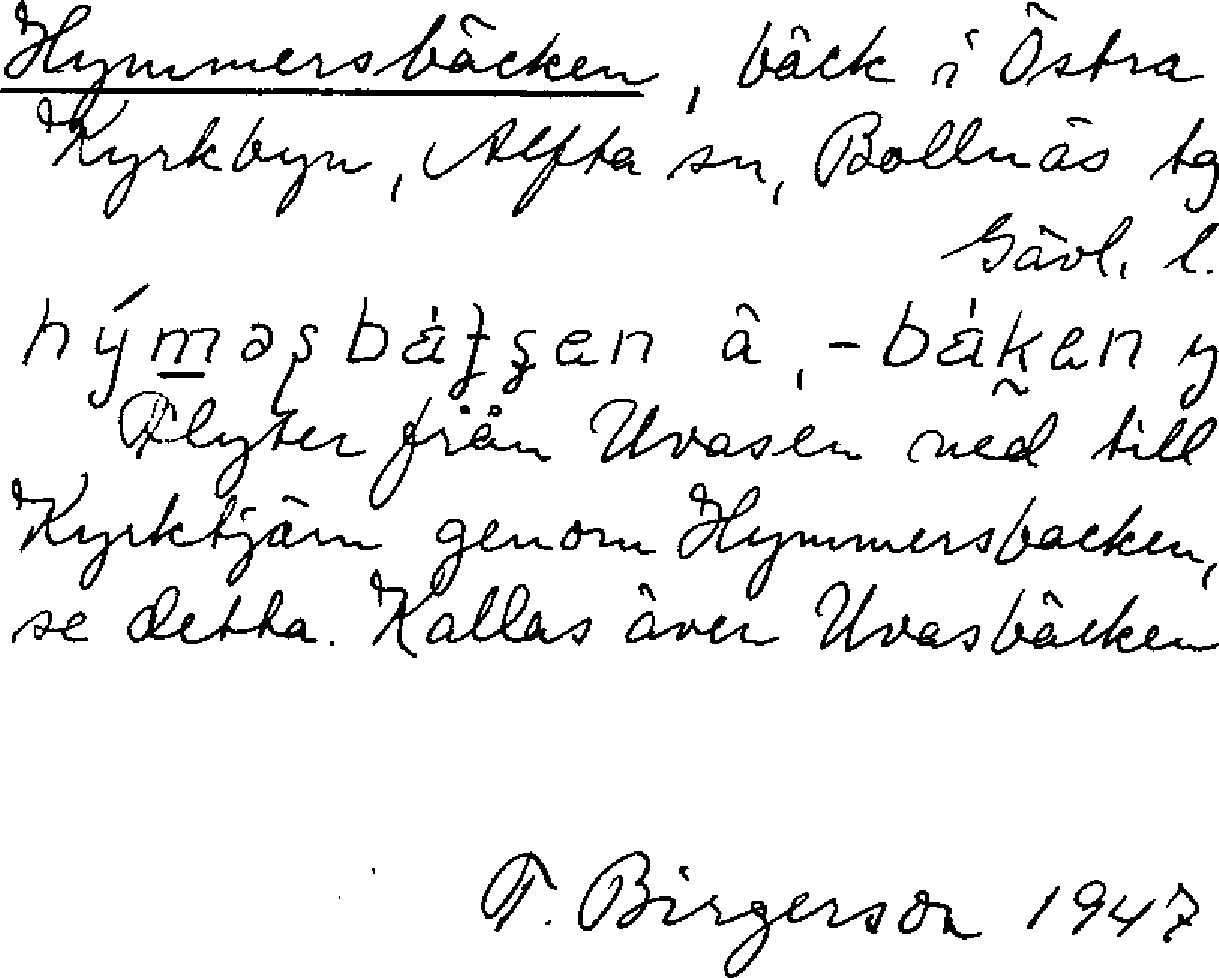 Hymmersbäcken, bäck i Östra
Kyrkbyn, Alfta sn, Bollnäs tg
Gävl. l.
hýməsbátsen ä, -båken y
Flyter från Uvasen ned till
Kyrktjärn genom Hymmersbacken,
se detta. Kallas även Uvasbäcken
T. Birgerson 1947